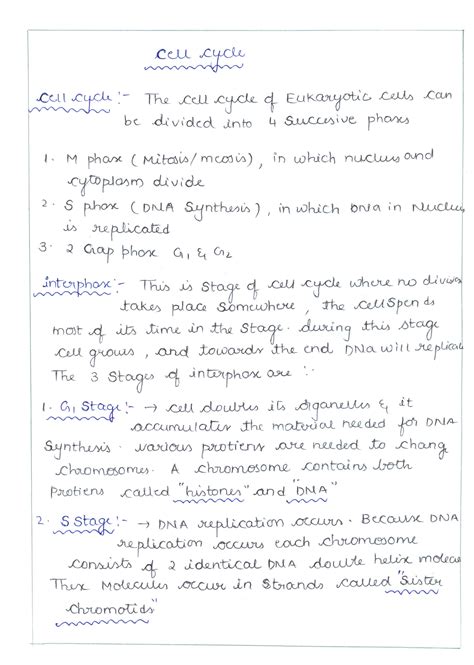 Cell cycle
Cell cycle :- The cell cycle of Eukaryotic cells can
be divided into 4 Succesive phases
1. M phase (Mitosis/meosis), in which nucleus and
cytoplasm divide
2. S phase (DNA Synthesis), in which DNA in Nucleus
is replicated
3. 2 Gap phase G1 & G2
interphase :- This is Stage of cell cycle where no divisi
takes place Somewhere, the cell Spends
most of its time in the Stage. during this stage
cell grows, and towards the end DNA will replicat
The 3 Stages of interphase are :-
1. G1 Stage :- → cell doubles its organelles & it
accumulates the material needed for DNA
Synthesis. various protiens are needed to change
chromosomes. A chromosome contains both
Protiens called "histones" and "DNA"
2. S Stage :- → DNA replication occurs. Because DNA
replication occurs each chromosome
consists of 2 identical DNA double helix molecu
These Molecules occur in Strands called "Sister
Chromotids"